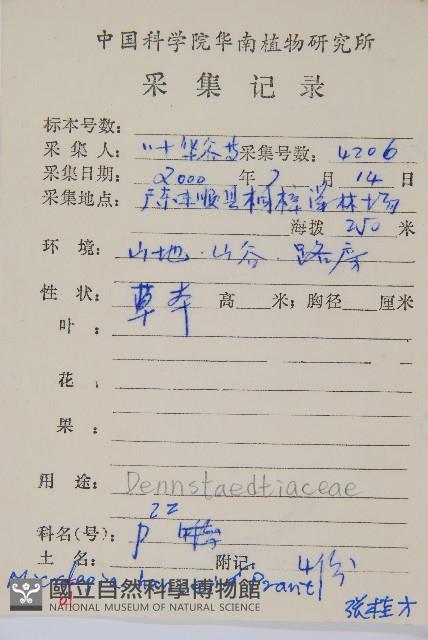 中国科学院华南植物研究所
采集记录
标本号数：
采集人： 叶华谷 采集号数： 4206
采集日期： 2000 年 7 月 14 日
采集地点： 广东 县 林场
海拨 250 米
环 境： 山地．山谷．路旁
性 状： 草本 高 米；胸径 厘米
叶：
花：
果：
用 途： Dennstaedtiaceae
22
科名(号)： P
土 名： 附记： 4份
Prantl
國立自然科學博物館
NATIONAL MUSEUM OF NATURAL SCIENCE
张桂才